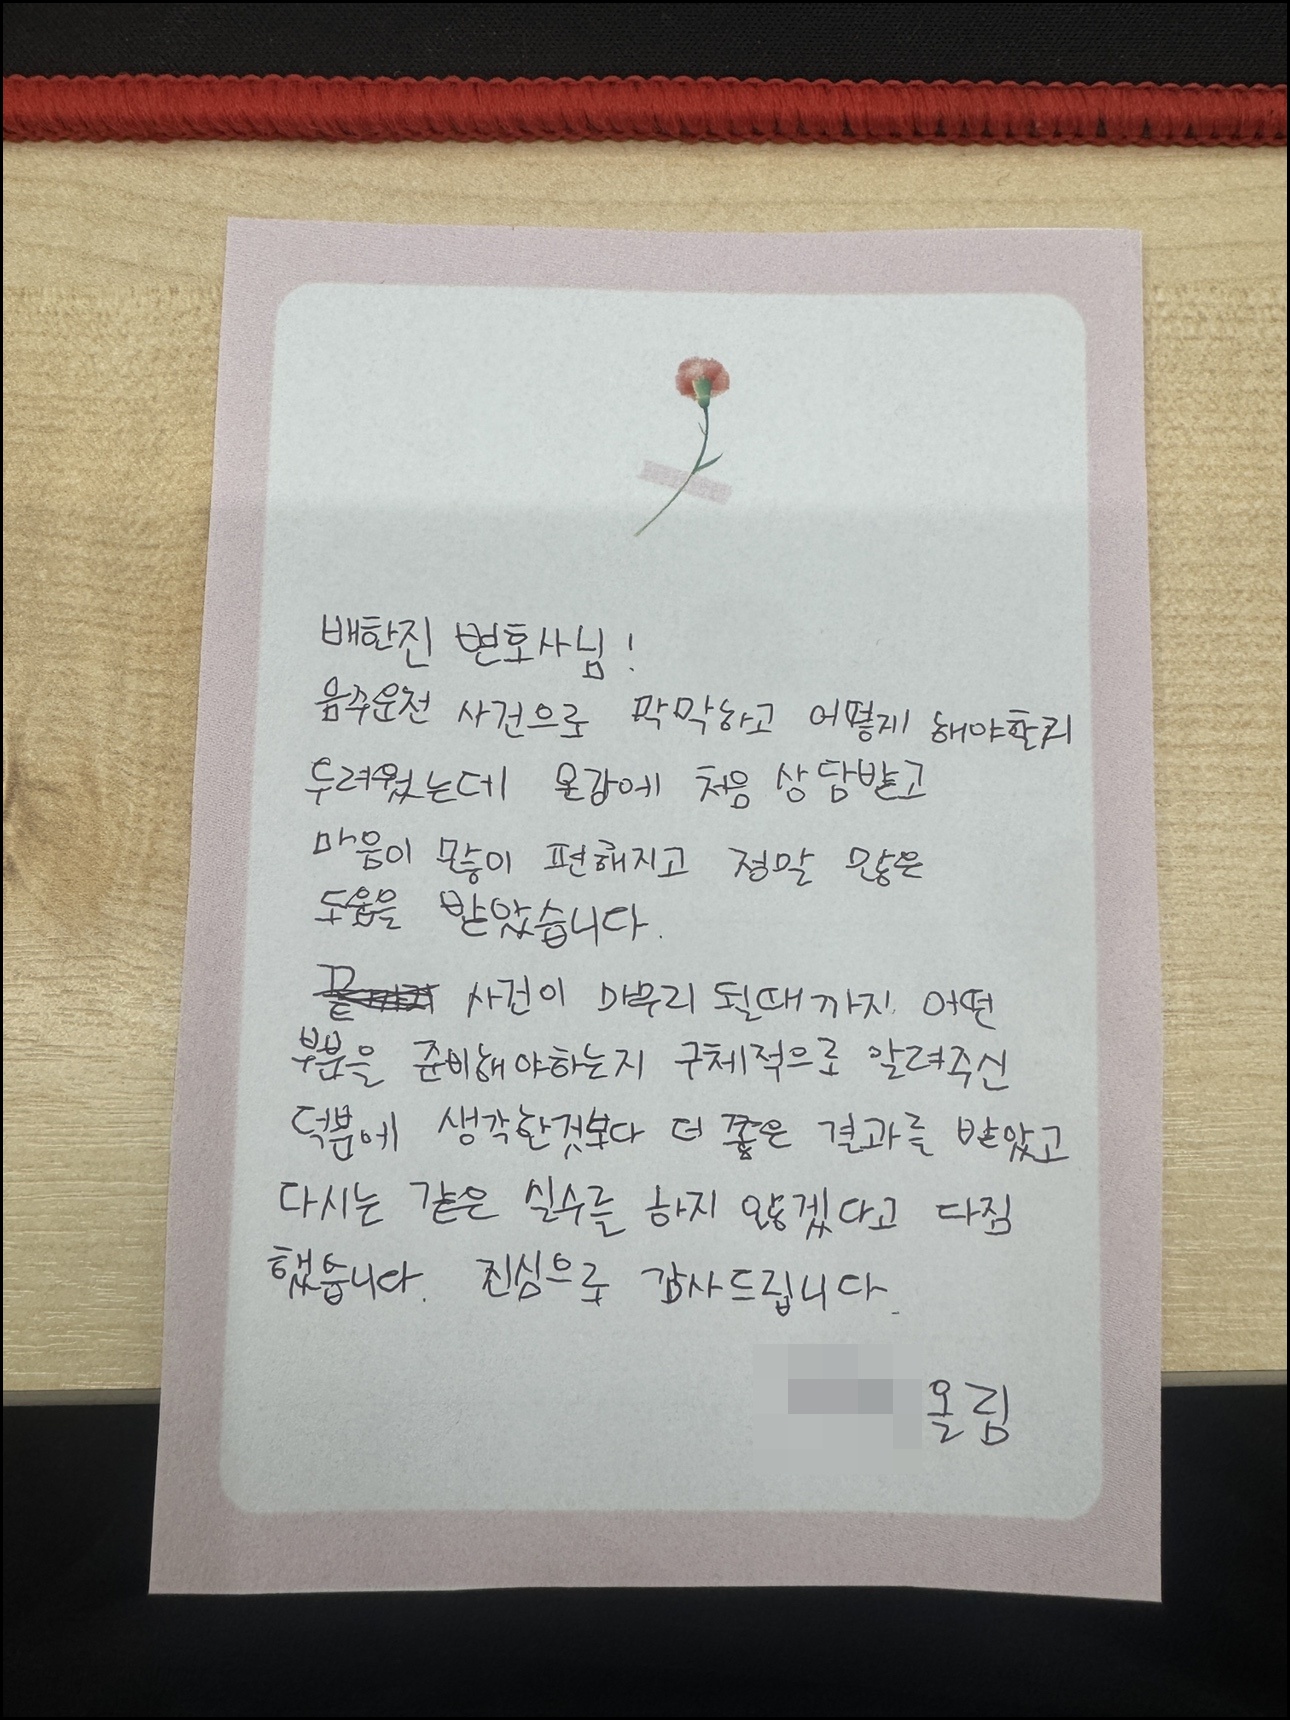 배한진 변호사님!
음주운전 사건으로 막막하고 어떻게 해야할지
두려웠는데 온강에 처음 상담받고
마음이 많이 편해지고 정말 많은
도움을 받았습니다.
사건이 마무리 될때까지 어떤
부분을 준비해야하는지 구체적으로 알려주신
덕분에 생각한것보다 더 좋은 결과를 받았고
다시는 같은 실수를 하지 않겠다고 다짐
했습니다. 진심으로 감사드립니다.
올림